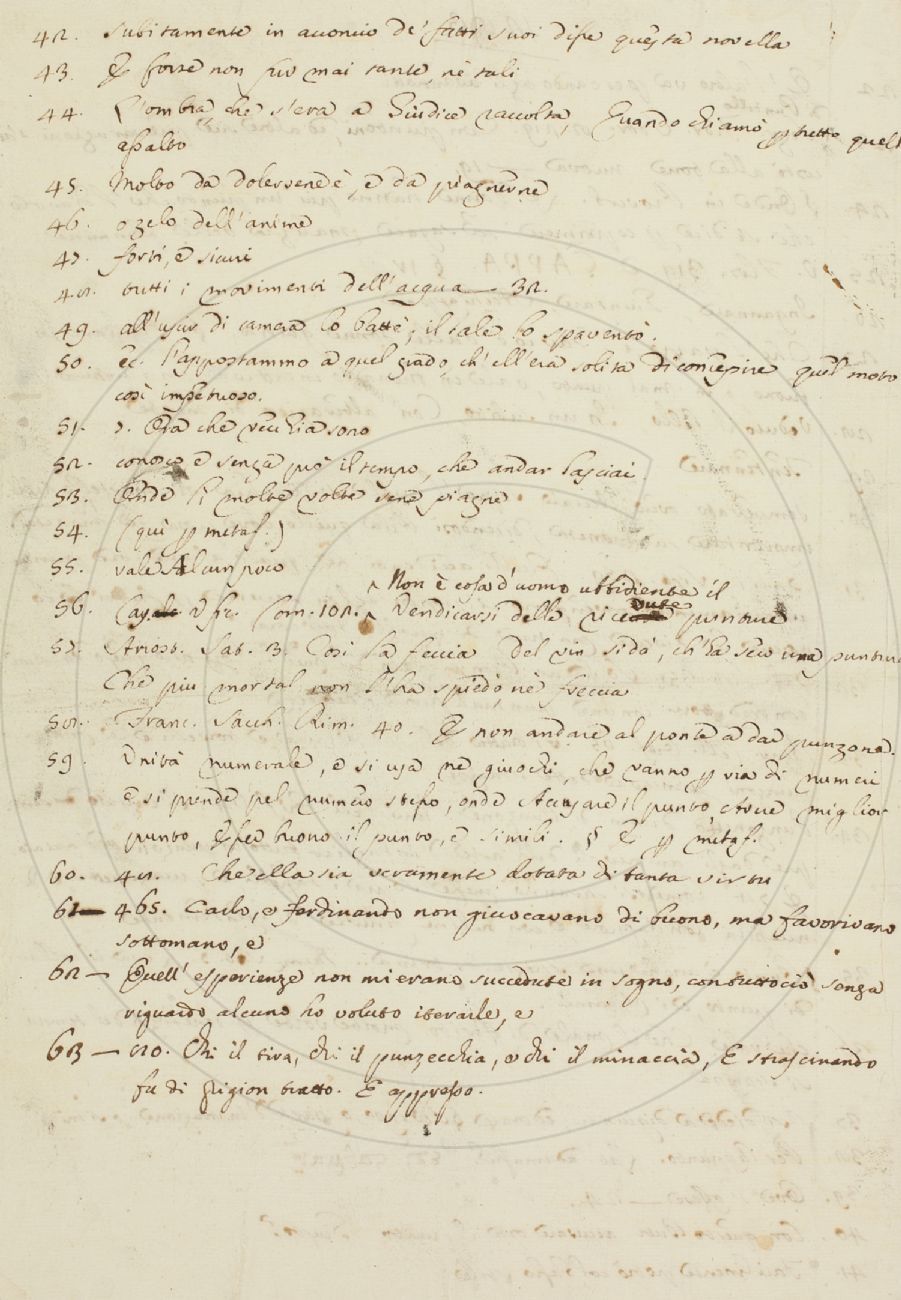 42. subitamente in acconcio de' fatti suoi disse questa novella
43. E forse non fur mai tante, nè tali
44. L'ombra, che s'era a Giudice raccolta, Quando chiamò p tutto quell'
assalto
45. Molto da dolersene è, e da piagnerne
46. o zelo dell'anime
47. forti, e sicuri
48. tutti i movimenti dell'acqua — 32.
49. all'uscir di camera lo battè, il tale lo spaventò.
50. ec. l'appostammo a quel grado, ch'ell'era solita di concepire quel moto
così impetuoso.
51. Ora che vecchia sono
52. conosco e senza può il tempo, che andar lasciai
53. Onde li molte volte sene piagne
54. (quì p metaf.)
55. vale Alcun poco
^ Non è cosa d'uomo ubbidiente il
56. Com. 102. ^ Vendicarsi delle ricevute punture
57. Ariost. Sat. 3. Così la feccia del vin si dà, ch'ha seco una puntura
Che piu mortal non l'ha spiedo, nè freccia
58. Franc. Sacch. Rim. 40. E non andare al ponte a dar punzone.
59. Unità numerale, e si usa ne giuochi, che vanno p via di numeri
e si prende pel numero stesso, onde Accusare il punto, Avere miglior
punto, Esser buono il punto, e simili. § E p metaf.
60. 48. Che ella sia veramente dotata di tanta virtu
61 — 465. Carlo, e Ferdinando non giuocavano di buono, ma favorivano
sottomano, e
62 — Quell'esperienze non mi erano succedute in sogno, contuttociò senza
riguardo alcuno ho voluto iterarle, e
63 — Chi il tira, chi il punzecchia, o chi il minaccia, E strascinando
fu di prigion tratto. E appresso.